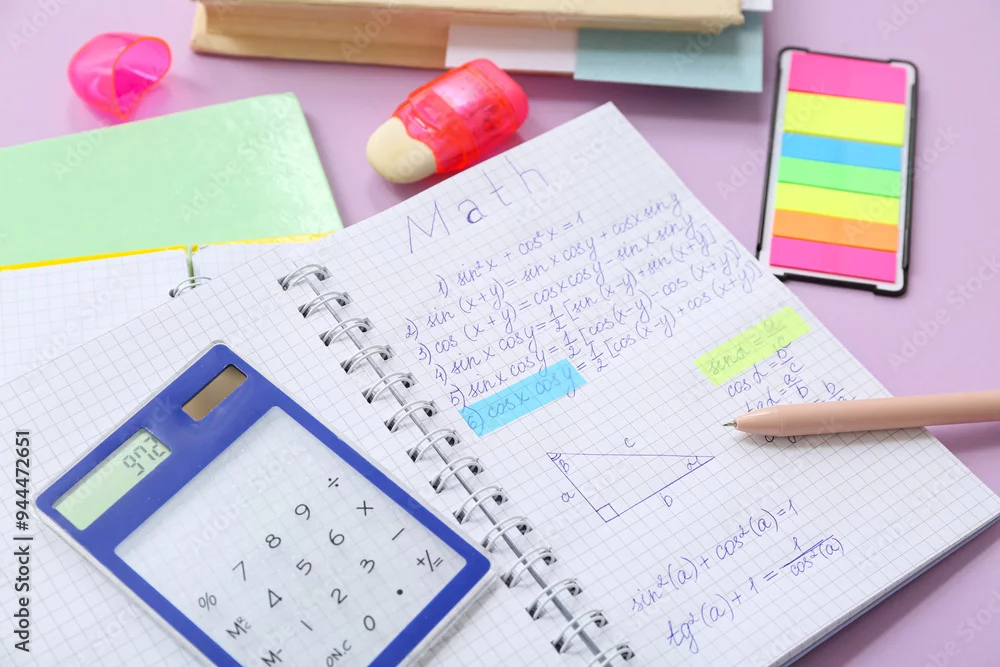 Math
1) sin²x + cos²x = 1
2) sin (x+y) = sin x cos y + cos x sin y
3) cos (x+y) = cos x cos y - sin x sin y
4) sin x cos y = 1/2 [sin (x-y) + sin (x+y)]
5) sin x cos y = 1/2 [cos (x-y) - cos (x+y)]
6) cos x cos y = 1/2 [cos (x-y) + cos (x+y)]
sin α = a
cos α = b
c
β
α
a
b
sin²(a) + cos²(a) = 1
tg²(a) + 1 = 1/cos²(a)
972
÷
9 ×
8 6 −
7 5 3 +/−
% 4 2 •
1 0
ON.C
Adobe Stock | #944472651